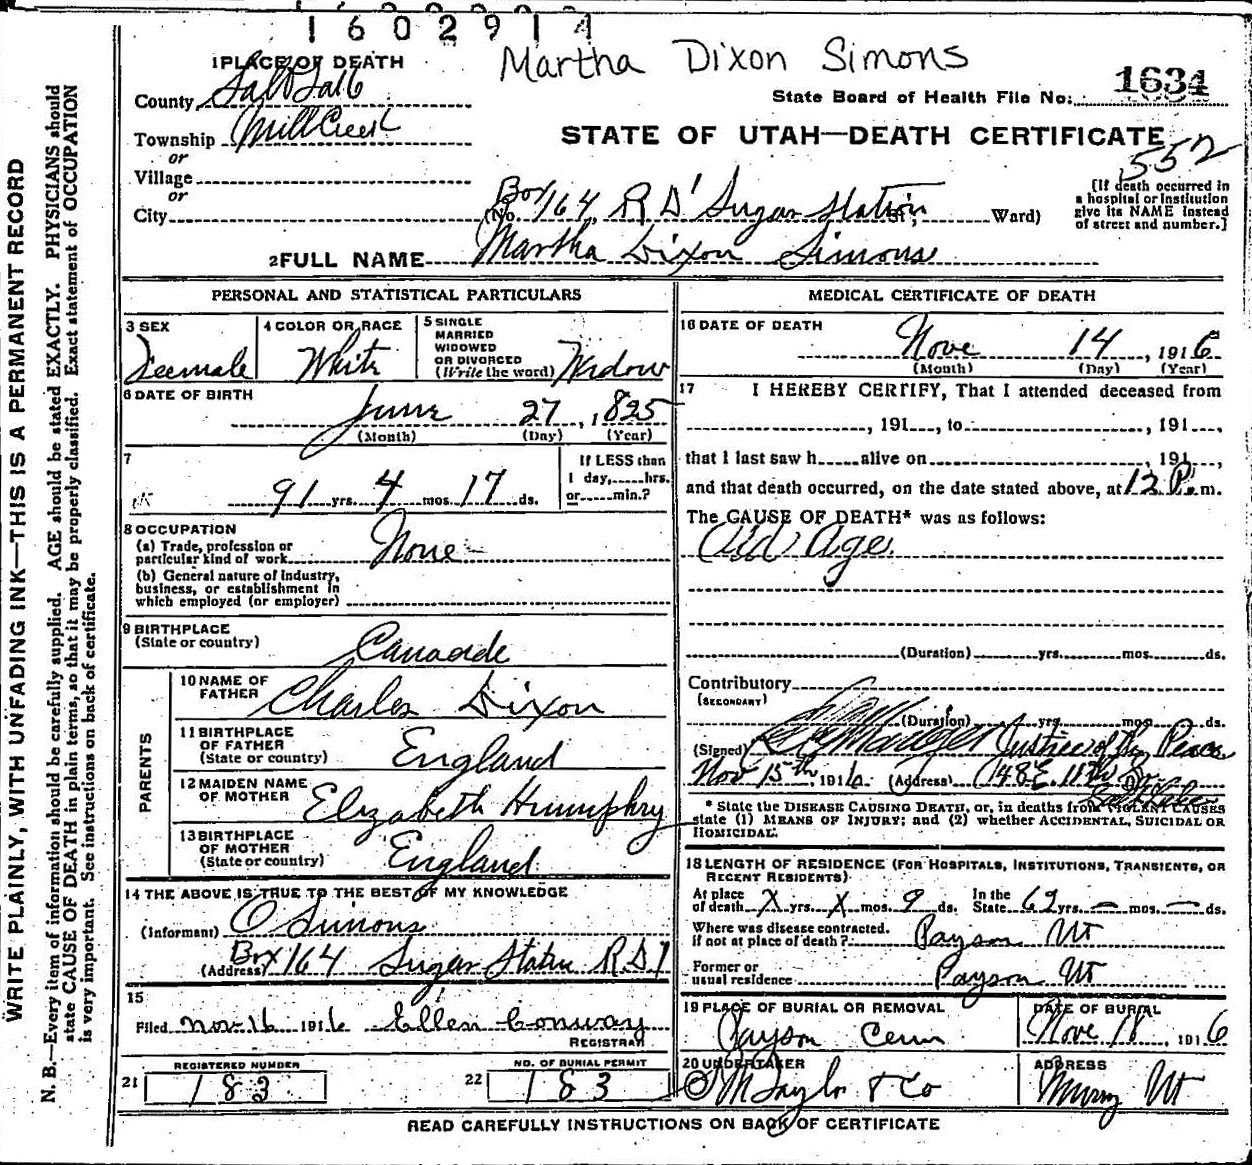 1602914
Martha Dixon Simons
1 PLACE OF DEATH
County Salt Lake
State Board of Health File No: 1634
Township Mill Creek
STATE OF UTAH—DEATH CERTIFICATE
or
552
Village
or
[If death occurred in a hospital or institution give its NAME instead of street and number.]
City (No. Box 164, R D 1 Sugar Station St; Ward)
2 FULL NAME Martha Dixon Simons
PERSONAL AND STATISTICAL PARTICULARS
3 SEX Feemale
4 COLOR OR RACE White
5 SINGLE
MARRIED
WIDOWED
OR DIVORCED
(Write the word) Widow
6 DATE OF BIRTH
June 27, 1825
(Month) (Day) (Year)
7
91 yrs. 4 mos. 17 ds.
If LESS than
1 day, hrs.
or min.?
8 OCCUPATION
(a) Trade, profession or
particular kind of work None
(b) General nature of industry,
business, or establishment in
which employed (or employer)
9 BIRTHPLACE
(State or country) Canaade
PARENTS
10 NAME OF
FATHER Charles Dixon
11 BIRTHPLACE
OF FATHER
(State or country) England
12 MAIDEN NAME
OF MOTHER Elizabeth Humphry
13 BIRTHPLACE
OF MOTHER
(State or country) England
14 THE ABOVE IS TRUE TO THE BEST OF MY KNOWLEDGE
(Informant) O Simons
(Address) Box 164 Sugar Station R.D. 1
15
Filed Nov 16 1916 Ellen Conway
REGISTRAR
REGISTERED NUMBER
21 183
NO. OF BURIAL PERMIT
22 183
MEDICAL CERTIFICATE OF DEATH
16 DATE OF DEATH
Nove 14, 1916
(Month) (Day) (Year)
17 I HEREBY CERTIFY, That I attended deceased from
, 191 , to , 191 ,
that I last saw h alive on , 191 ,
and that death occurred, on the date stated above, at 12 P. m.
The CAUSE OF DEATH* was as follows:
Old Age.
(Duration) yrs. mos. ds.
Contributory
(SECONDARY)
(Duration) yrs. mos. ds.
(Signed) Justice of the Peace
Nov 15th 1916. (Address) 148 E. 11th So.
Salt Lake
* State the DISEASE CAUSING DEATH, or, in deaths from VIOLENT CAUSES
state (1) MEANS OF INJURY; and (2) whether ACCIDENTAL, SUICIDAL OR
HOMICIDAL.
18 LENGTH OF RESIDENCE (FOR HOSPITALS, INSTITUTIONS, TRANSIENTS, OR
RECENT RESIDENTS)
At place
of death X yrs. X mos. 9 ds. In the
State 62 yrs. — mos. — ds.
Where was disease contracted.
if not at place of death? Payson Ut
Former or
usual residence Payson Ut
19 PLACE OF BURIAL OR REMOVAL
Payson Cem
DATE OF BURIAL
Nove 18, 1916
20 UNDERTAKER
M Taylor & Co
ADDRESS
Murry Ut
READ CAREFULLY INSTRUCTIONS ON BACK OF CERTIFICATE
WRITE PLAINLY, WITH UNFADING INK—THIS IS A PERMANENT RECORD
N. B.—Every item of information should be carefully supplied. AGE should be stated EXACTLY. PHYSICIANS should
state CAUSE OF DEATH in plain terms, so that it may be properly classified. Exact statement of OCCUPATION
is very important. See instructions on back of certificate.